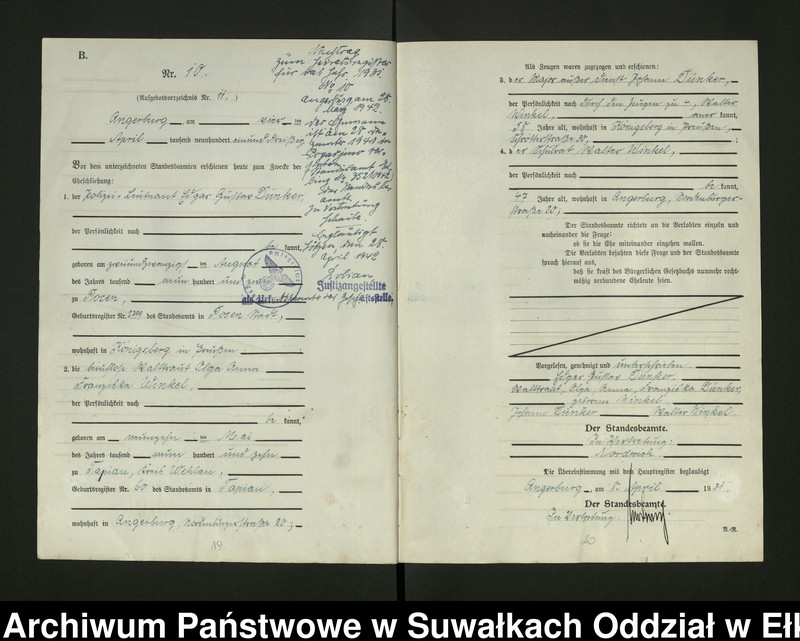 B.
Nr. 10.
(Aufgebotsverzeichnis Nr. 11.)
Angerburg, am vier ten
April tausend neunhundert einunddreißig
Vor dem unterzeichneten Standesbeamten erschienen heute zum Zwecke der
Eheschließung:
1. der Polizei-Leutnant Edgar Gustav Dünker,
der Persönlichkeit nach
be kannt,
geboren am zweiundzwanzigsten August
des Jahres tausend neun hundert und
zu Posen,
Geburtsregister Nr. 2399 des Standesamts in Posen Stadt,
wohnhaft in Königsberg in Preußen
2. die berufslose Waltraut Olga Anna
Franziska Winkel,
der Persönlichkeit nach
be kannt,
geboren am neunzehnten Mai
des Jahres tausend neun hundert und zehn
zu Tapiau, Kreis Wehlau,
Geburtsregister Nr. 60 des Standesamts in Tapiau,
wohnhaft in Angerburg, Nordenburgerstraße 20;
19
Nachtrag
zum Heiratsregister
für das Jahr 1931
No 10
Angerburg, am 28.
1942.
Der Ehemann
ist am 28. De-
zember 1941 in
ver-
storben
(Standesamt El-
bing Nr. 352/1942
Der Standesbe-
amte.
In Vertretung
Beglaubigt
Lötzen, den 28.
April 1942
Justizangestellte
als Urkundsbeamter der Geschäftsstelle.
Als Zeugen waren zugezogen und erschienen:
3. der Major außer Dienst Johann Dünker,
der Persönlichkeit nach durch den Zeugen zu 4, Walter
Winkel, aner kannt,
58 Jahre alt, wohnhaft in Königsberg in Preußen,
Schrötterstraße
4. der Schulrat Walter Winkel,
der Persönlichkeit nach
be kannt,
47 Jahre alt, wohnhaft in Angerburg, Nordenburger-
straße 20;
Der Standesbeamte richtete an die Verlobten einzeln und
nacheinander die Frage:
ob sie die Ehe miteinander eingehen wollen.
Die Verlobten bejahten diese Frage und der Standesbeamte
sprach hierauf aus,
daß sie kraft des Bürgerlichen Gesetzbuchs nunmehr recht-
mäßig verbundene Eheleute seien.
Vorgelesen, genehmigt und unterschrieben.
Edgar Gustav Dünker.
Waltraut, Olga, Anna, Franziska Dünker,
geborene Winkel.
Johann Dünker Walter Winkel.
Der Standesbeamte.
In Vertretung:
Die Übereinstimmung mit dem Hauptregister beglaubigt
Angerburg, am April 1931.
Der Standesbeamte.
In Vertretung:
20
Archiwum Państwowe w Suwałkach Oddział w Eł